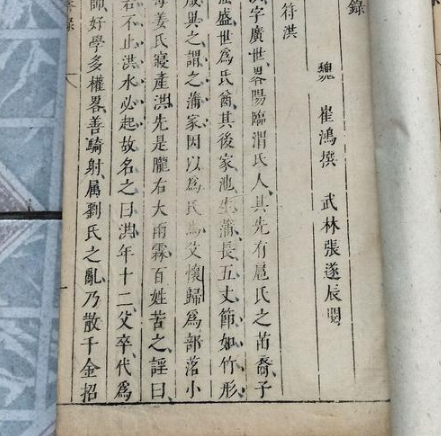 錄
魏 崔鴻撰 武林張遂辰閱
符洪
字廣世畧陽臨渭氏人其先有扈氏之苗裔子
盛世爲氏酋其後家池生蒲長五丈節如竹形
咸異之謂之蒲家因以爲氏焉父懷歸爲部落小
母姜氏寢產洪先是隴右大雨霖百姓苦之謠曰
若不止洪水必起故名之曰洪年十二父卒代爲
帥好學多權畧善騎射屬劉氏之亂乃散千金招
錄